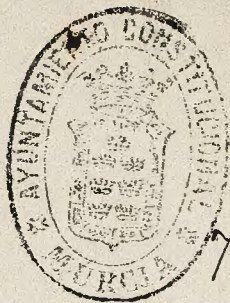 AYUNTAMIENTO CONSTITUCIONAL
MURCIA